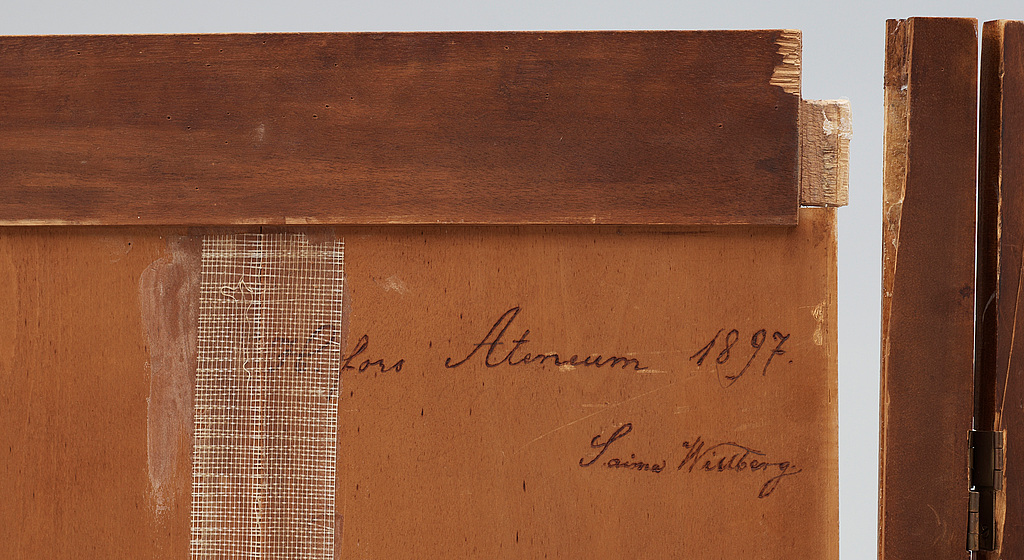 fors Ateneum 1897.
Saima Willberg.